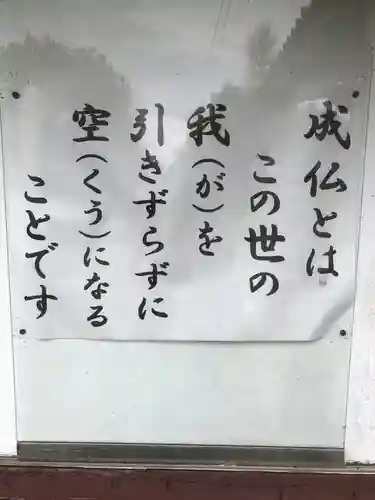 成仏とは
この世の
我(が)を
引きずらずに
空(くう)になる
ことです